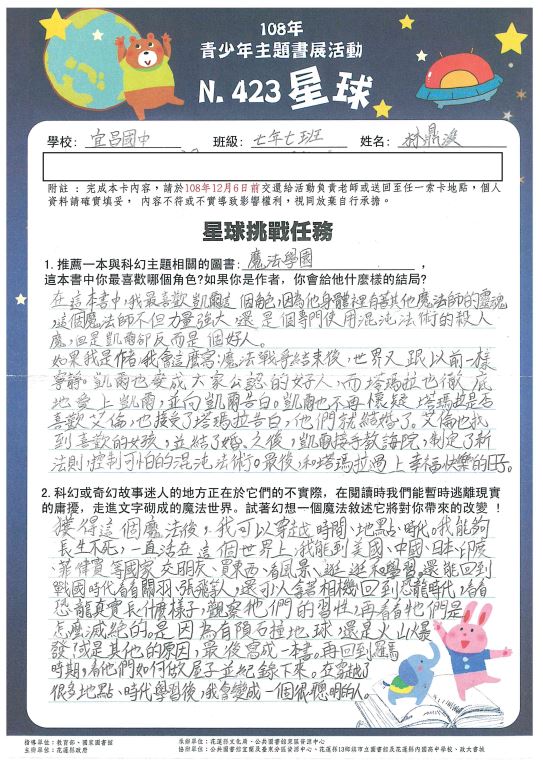 108年
青少年主題書展活動
N. 423 星球
學校: 宜昌國中 班級: 七年七班 姓名: 林鼎
附註:完成本卡內容,請於108年12月6日前交還給活動負責老師或送回至任一索卡地點,個人
資料請確實填妥, 內容不符或不實導致影響權利,視同放棄自行承擔。
星球挑戰任務
1. 推薦一本與科幻主題相關的圖書: 魔法學園 ,
這本書中你最喜歡哪個角色?如果你是作者,你會給他什麼樣的結局?
在這本書中,我最喜歡凱爾這個角色,因為他身體裡有著其他魔法師的靈魂
,這個魔法師不但力量強大,還是個專門使用混沌法術的殺人
魔,但是凱爾卻反而是個好人。
如果我是作者,我會這麼寫:魔法戰爭結束後,世界又跟以前一樣
寧靜。凱爾也變成大家公認的好人,而塔瑪拉也徹底
地愛上凱爾,並向凱爾告白。凱爾也不再懷疑塔瑪拉是否
喜歡艾倫,也接受了塔瑪拉告白,他們就結婚了。艾倫也找
到喜歡的女孩,並結了婚。之後,凱爾接手教誨院,制定了新
法則,控制可怕的混沌法術。最後,和塔瑪拉過上幸福快樂的日子。
2. 科幻或奇幻故事迷人的地方正在於它們的不實際,在閱讀時我們能暫時逃離現實
的庸擾,走進文字砌成的魔法世界。試著幻想一個魔法敘述它將對你帶來的改變!
獲得這個魔法後,我可以穿越時間、地點、時代。我能夠
長生不死,一直活在這個世界上,我能到美國、中國、日本、印度、
菲律賓等國家交朋友、買東西、看風景、逛逛和學習。還能回到
戰國時代看看關羽、張飛等人,還可以拿著相機回到恐龍時代,看看
恐龍真實長什麼樣子,觀察牠們的習性,再看看牠們是
怎麼滅絕的。是因為有隕石撞地球,還是火山爆
發或是其他的原因,最後寫成一本書。再回到羅馬
時期,看他們如何做屋子並紀錄下來。在穿越了
很多地點、時代學習後,我會變成一個很聰明的人。
指導單位:教育部、國家圖書館
主辦單位:花蓮縣政府
承辦單位:花蓮縣文化局、公共圖書館東區資源中心
協辦單位:公共圖書館宜蘭及臺東分區資源中心、花蓮縣13鄉鎮市立圖書館及花蓮縣內國高中學校、政大書城